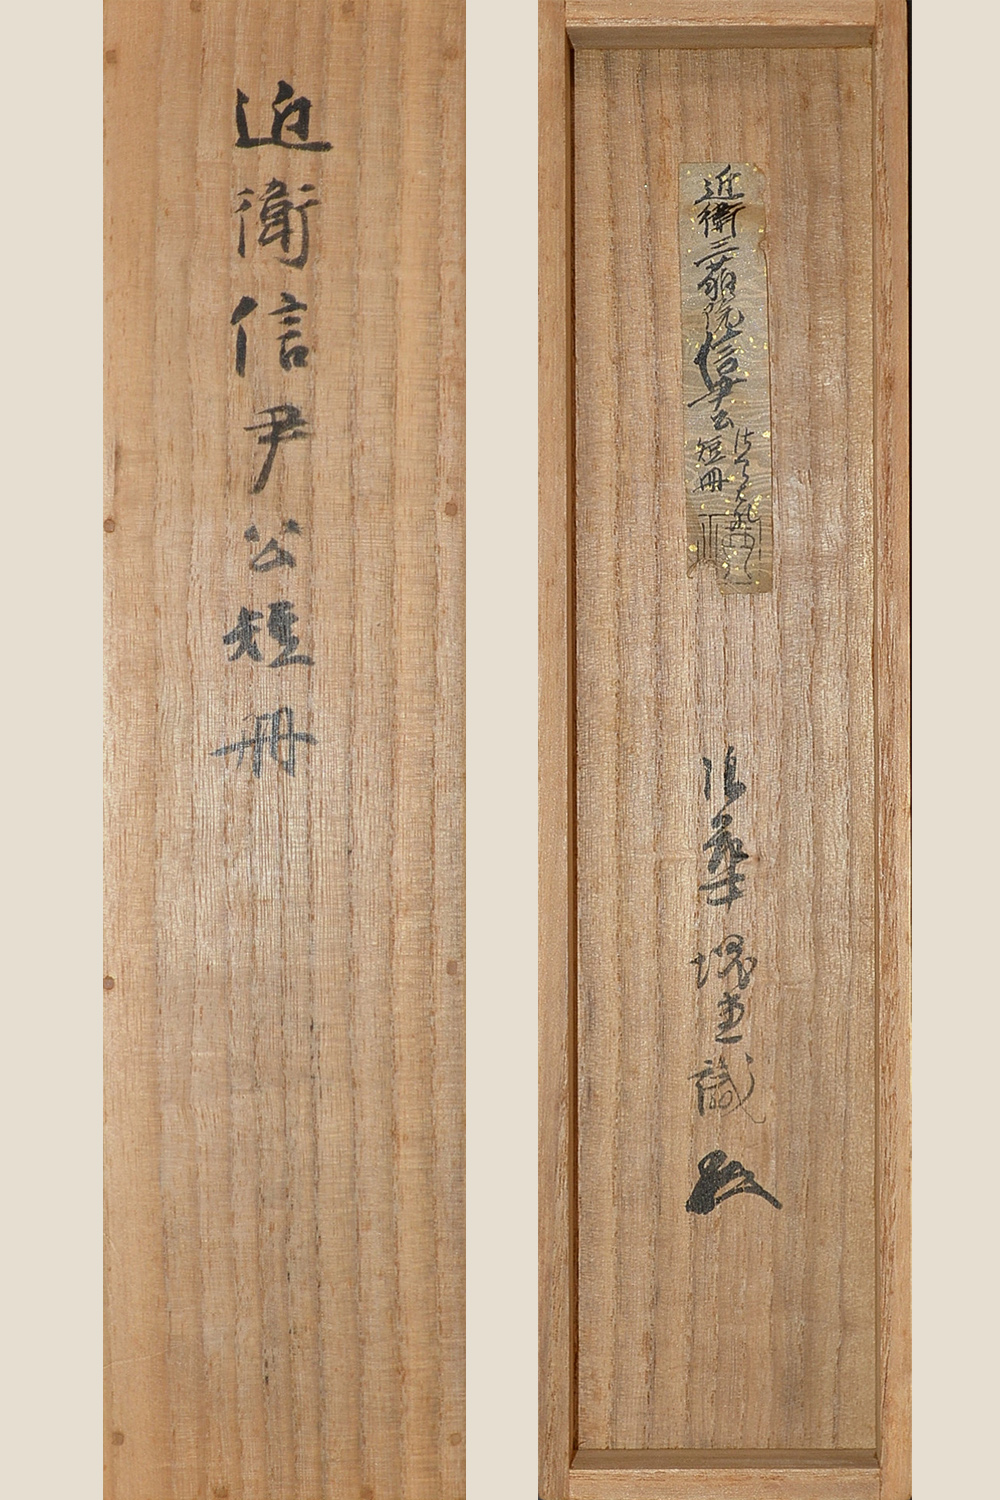 近衛信尹公短冊
近衛三藐院信尹公
短冊
浪華
識